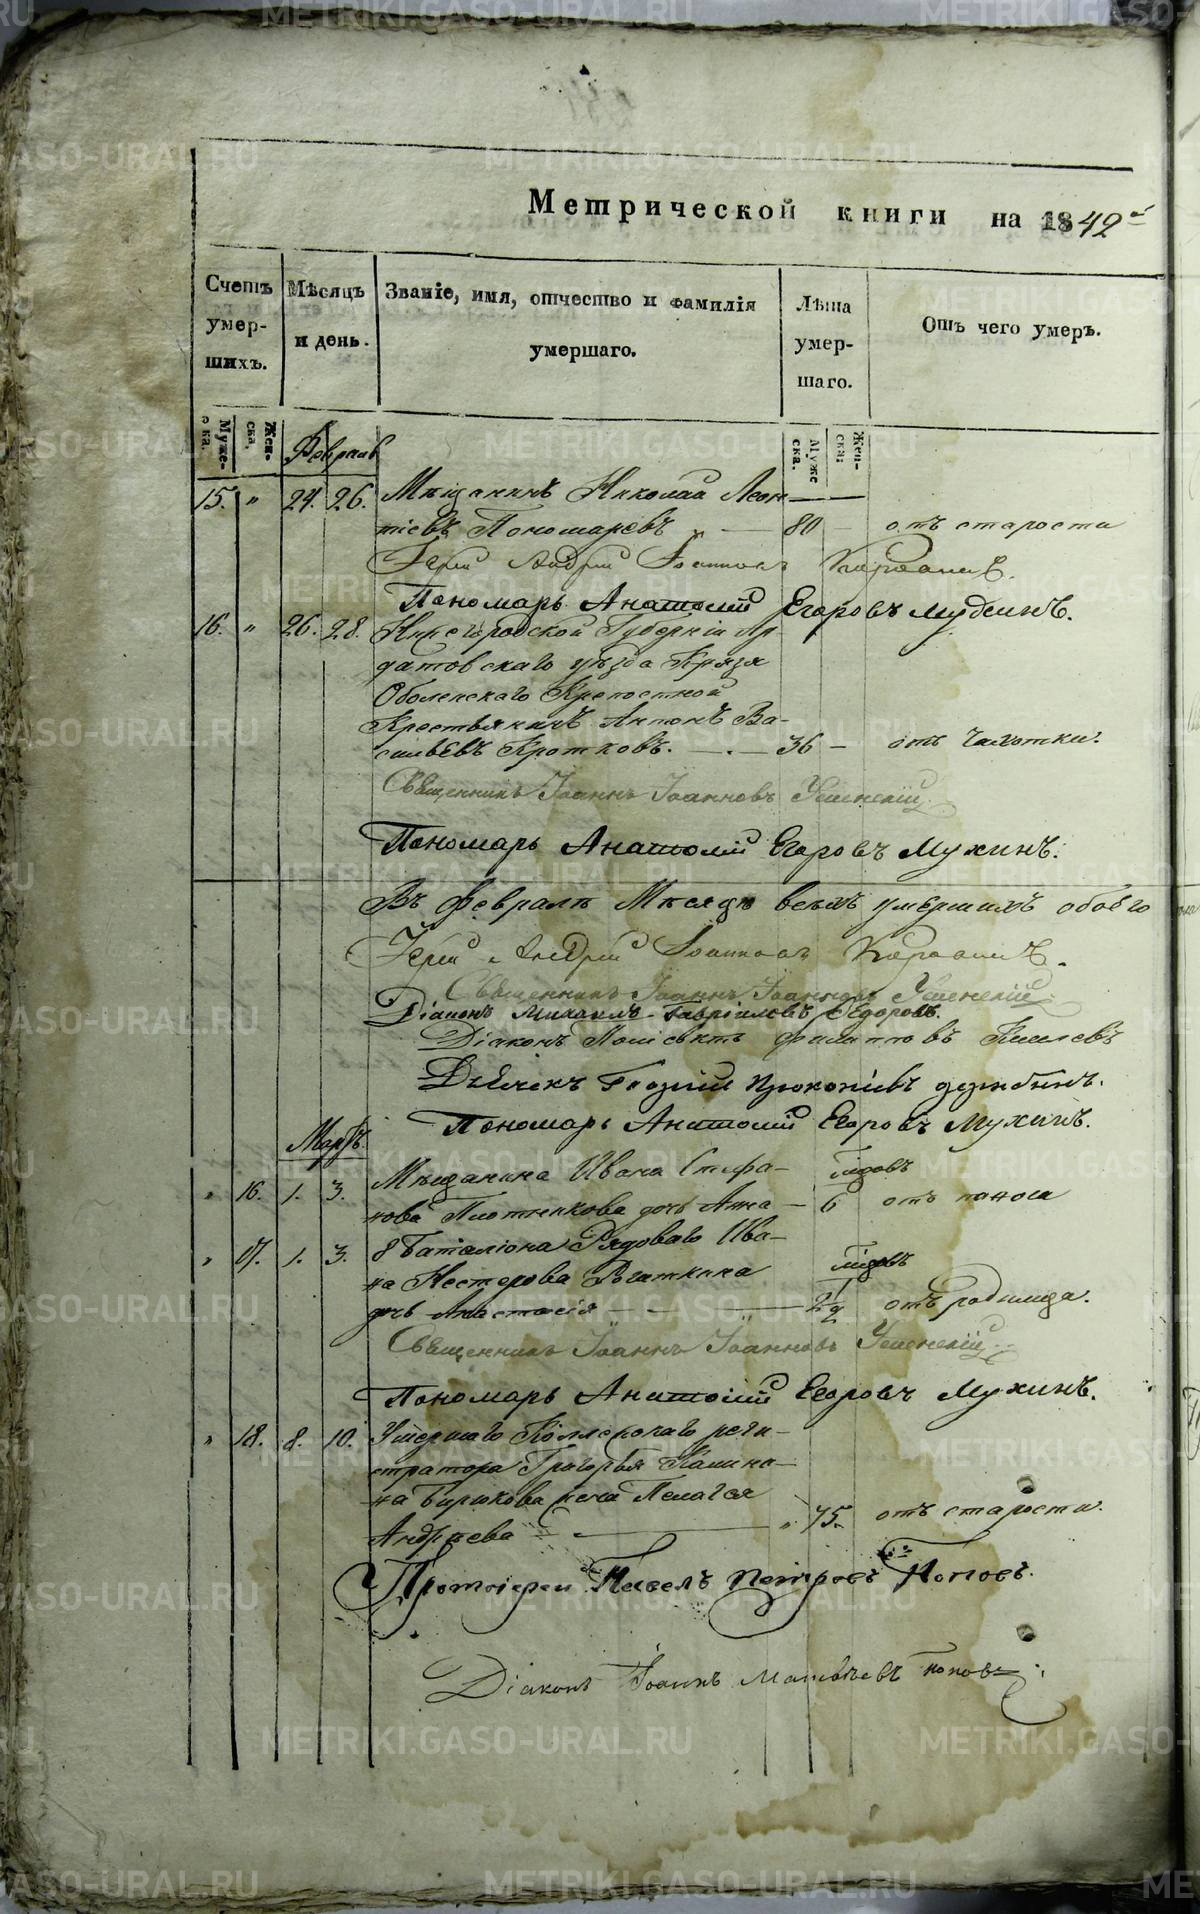 Метрической книги на 1842й
Счетъ умер- шихъ.
Мѣсяцъ и день.
Званіе, имя, отчество и фамилія умершаго.
Лѣта умер- шаго.
Отъ чего умеръ.
Муже- ска. Жен- ска. Муже ска. Жен- ска.
Февраль
15. " 24. 26. Мѣщанинъ Николай Леон-
тіевъ Пономаревъ 80 отъ старости
Іерей Андрей Іоанновъ
Пономарь Анатолій Егоровъ Мухинъ.
16. " 26. 28. Нижегородской Губерніи Ар-
датовскаго уѣзда Князя
Оболенскаго Крепостной
Крестьянинъ Антонъ Ва-
сильевъ Кротковъ. 36 отъ Чахотки.
Священникъ Іоаннъ Іоанновъ Успенскій
Пономарь Анатолій Егоровъ Мухинъ.
Въ Февралѣ Мѣсяцѣ всѣхъ умершихъ обоего
Іерей Андрей Іоанновъ
Священникъ Іоаннъ Іоанновъ Успенскій
Діаконъ Михаилъ Гавріиловъ Ѳедоровъ.
Діаконъ Филипповъ Киселевъ
Дьячекъ Георгій Прокопіевъ
Пономарь Анатолій Егоровъ Мухинъ.
Мартъ.
" 16. 1. 3. Мѣщанина Ивана Стефа- годовъ
нова Плотникова дочь Анна 6 отъ поноса
" 17. 1. 3. 8 Баталіона Рядоваго Ива-
на Нестерова Рогаткина годовъ
дочь Анастасія 2½ отъ родимца.
Священникъ Іоаннъ Іоанновъ Успенскій
Пономарь Анатолій Егоровъ Мухинъ.
" 18. 8. 10. Умершаго Коллежскаго реги-
стратора Григорья Калини-
на Бирюкова жена Пелагея
Андрѣева " 75. отъ старости.
Протоіерей Павелъ Петровъ Поповъ.
Діаконъ Іоаннъ Матвѣевъ Поповъ
METRIKI.GASO-URAL.RU